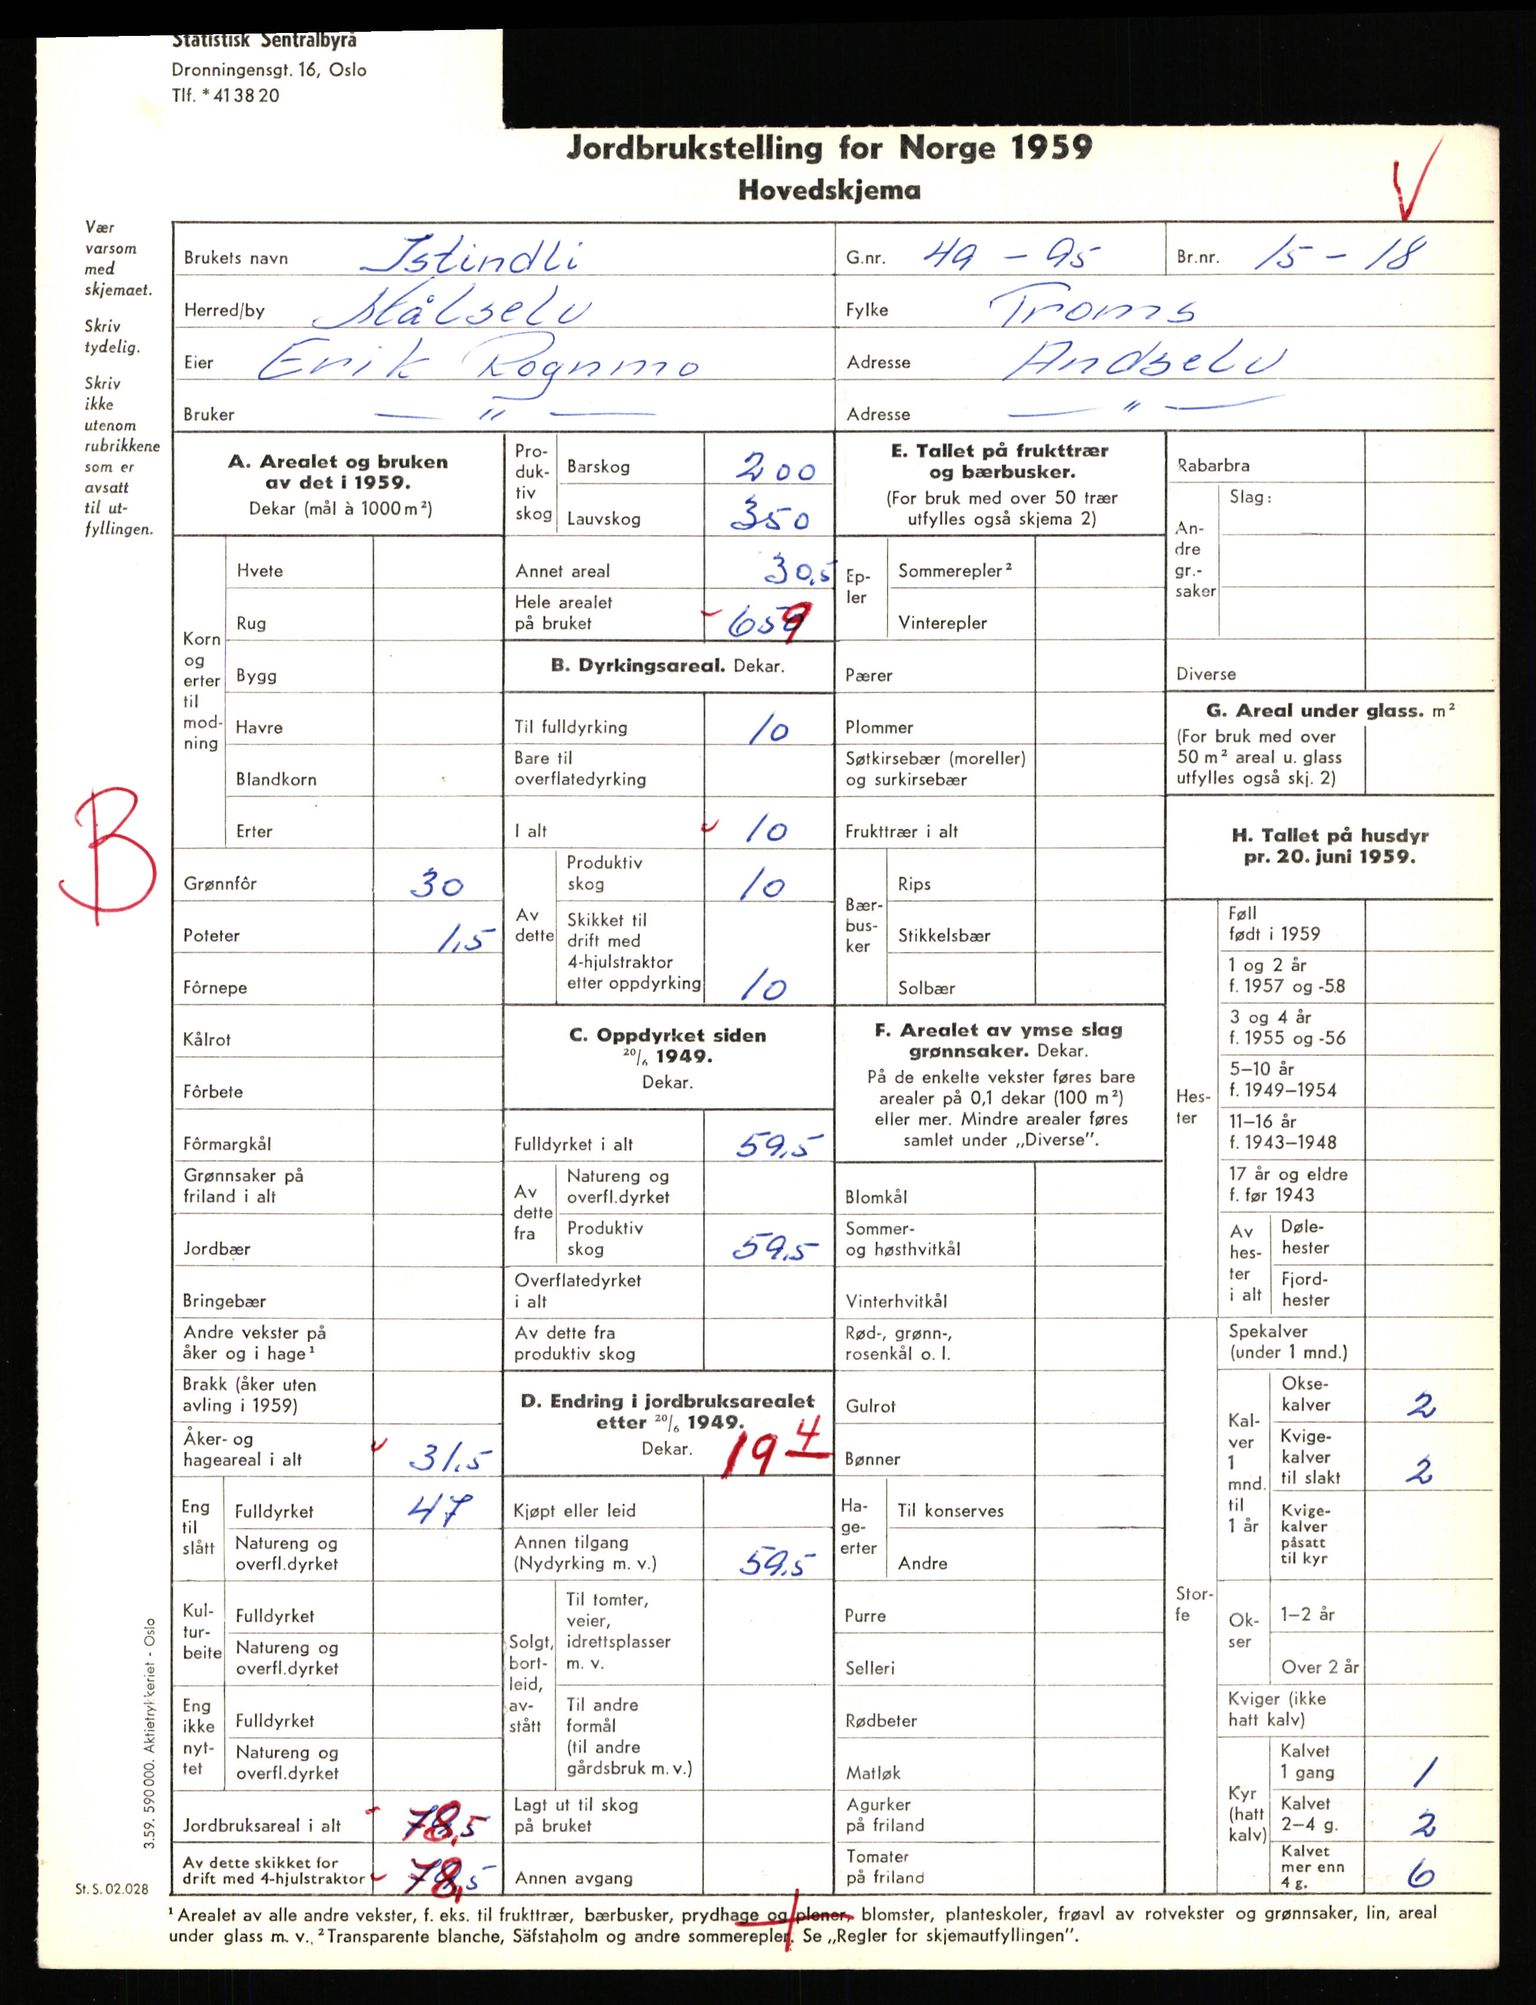 Statistisk Sentralbyrå
Dronningensgt. 16, Oslo
Tlf. * 41 38 20
Jordbrukstelling for Norge 1959
Hovedskjema
Vær
varsom
med
skjemaet.
Skriv
tydelig.
Skriv
ikke
utenom
rubrikkene
som er
avsatt
til ut-
fyllingen.
Brukets navn Istindli G.nr. 49 - 95 Br.nr. 15 - 18
Herred/by Målselv Fylke Troms
Eier Erik Rognmo Adresse Andselv
Bruker — " — Adresse — " —
A. Arealet og bruken
av det i 1959.
Dekar (mål à 1000 m²)
Korn
og
erter
til
mod-
ning
Hvete
Rug
Bygg
Havre
Blandkorn
Erter
Grønnfôr 30
Poteter 1,5
Fôrnepe
Kålrot
Fôrbete
Fôrmargkål
Grønnsaker på
friland i alt
Jordbær
Bringebær
Andre vekster på
åker og i hage¹
Brakk (åker uten
avling i 1959)
Åker- og
hageareal i alt 31,5
Eng
til
slått
Fulldyrket 47
Natureng og
overfl.dyrket
Kul-
tur-
beite
Fulldyrket
Natureng og
overfl.dyrket
Eng
ikke
nyt-
tet
Fulldyrket
Natureng og
overfl.dyrket
Jordbruksareal i alt 78,5
Av dette skikket for
drift med 4-hjulstraktor 78,5
Pro-
duk-
tiv
skog
Barskog 200
Lauvskog 350
Annet areal 30,5
Hele arealet
på bruket 659
B. Dyrkingsareal. Dekar.
Til fulldyrking 10
Bare til
overflatedyrking
I alt 10
Av
dette
Produktiv
skog 10
Skikket til
drift med
4-hjulstraktor
etter oppdyrking 10
C. Oppdyrket siden
20/6 1949.
Dekar.
Fulldyrket i alt 59,5
Av
dette
fra
Natureng og
overfl.dyrket
Produktiv
skog 59,5
Overflatedyrket
i alt
Av dette fra
produktiv skog
D. Endring i jordbruksarealet
etter 20/6 1949.
Dekar. 19 4
Kjøpt eller leid
Annen tilgang
(Nydyrking m. v.) 59,5
Solgt,
bort-
leid,
av-
stått
Til tomter,
veier,
idrettsplasser
m. v.
Til andre
formål
(til andre
gårdsbruk m. v.)
Lagt ut til skog
på bruket
Annen avgang
E. Tallet på frukttrær
og bærbusker.
(For bruk med over 50 trær
utfylles også skjema 2)
Ep-
ler
Sommerepler²
Vinterepler
Pærer
Plommer
Søtkirsebær (moreller)
og surkirsebær
Frukttrær i alt
Bær-
bus-
ker
Rips
Stikkelsbær
Solbær
F. Arealet av ymse slag
grønnsaker. Dekar.
På de enkelte vekster føres bare
arealer på 0,1 dekar (100 m²)
eller mer. Mindre arealer føres
samlet under „Diverse".
Blomkål
Sommer-
og høsthvitkål
Vinterhvitkål
Rød-, grønn-,
rosenkål o. l.
Gulrot
Bønner
Ha-
ge-
erter
Til konserves
Andre
Purre
Selleri
Rødbeter
Matløk
Agurker
på friland
Tomater
på friland
Rabarbra
An-
dre
gr.-
saker
Slag:
Diverse
G. Areal under glass. m²
(For bruk med over
50 m² areal u. glass
utfylles også skj. 2)
H. Tallet på husdyr
pr. 20. juni 1959.
Hes-
ter
Føll
født i 1959
1 og 2 år
f. 1957 og -58
3 og 4 år
f. 1955 og -56
5–10 år
f. 1949–1954
11–16 år
f. 1943–1948
17 år og eldre
f. før 1943
Av
hes-
ter
i alt
Døle-
hester
Fjord-
hester
Stor-
fe
Spekalver
(under 1 mnd.)
Kal-
ver
1
mnd.
til
1 år
Okse-
kalver 2
Kvige-
kalver
til slakt 2
Kvige-
kalver
påsatt
til kyr
Ok-
ser
1–2 år
Over 2 år
Kviger (ikke
hatt kalv)
Kyr
(hatt
kalv)
Kalvet
1 gang 1
Kalvet
2–4 g. 2
Kalvet
mer enn
4 g. 6
B
3.59. 590 000. Aktietrykkeriet - Oslo
St. S. 02.028
¹ Arealet av alle andre vekster, f. eks. til frukttrær, bærbusker, prydhage og plener, blomster, planteskoler, frøavl av rotvekster og grønnsaker, lin, areal
under glass m. v. ² Transparente blanche, Säfstaholm og andre sommerepler. Se „Regler for skjemautfyllingen".